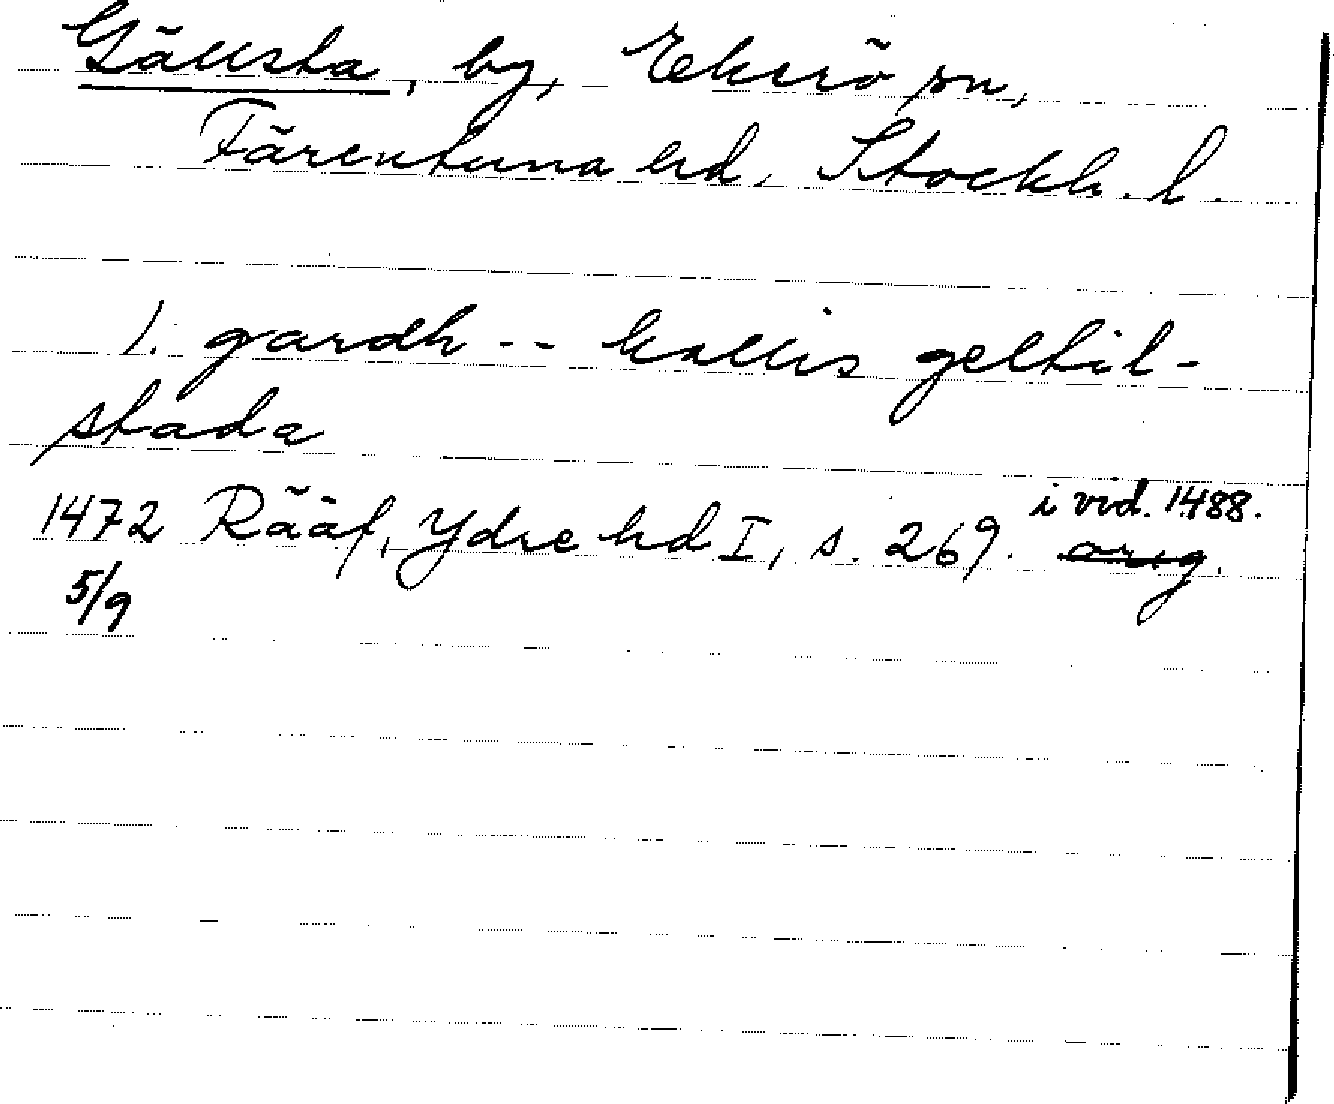 Gällsta, by, Ekerö sn,
Färentuna hd, Stockh. l.
1. gardh -- kallis geltil-
stada
1472 Rääf, Ydre hd I, s. 269. i vid. 1488.
orig.
5/9